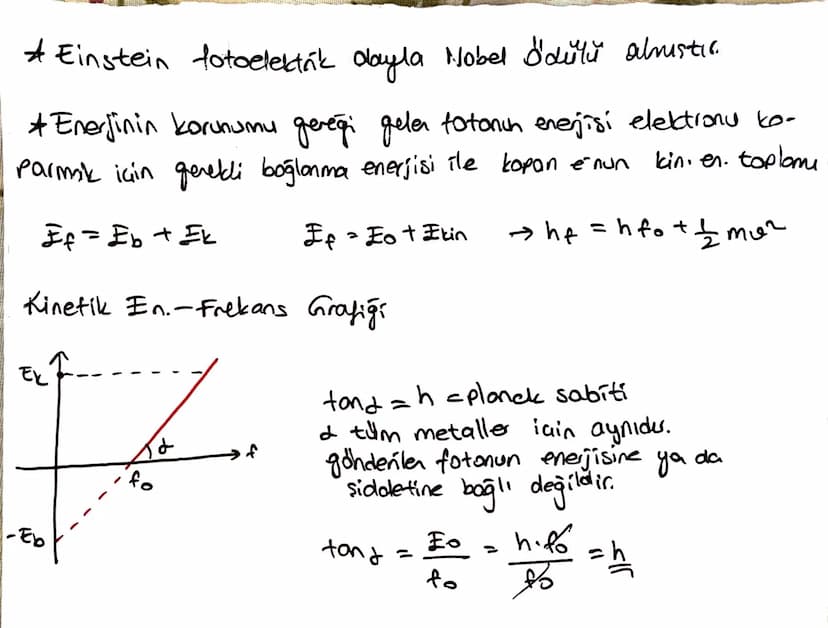 * Einstein fotoelektrik olayla Nobel Ödülü almıştır.
* Enerjinin korunumu gereği gelen fotonun enerjisi elektronu ko-
parmak için gerekli bağlanma enerjisi ile kopan e⁻nun kin. en. toplamı
Ef = Eb + Ek    Ef = Eo + Ekin → hf = hfo + 1/2 mv²
Kinetik En. – Frekans Grafiği
Ek
α
f
fo
-Eb
tanα = h = planck sabiti
α tüm metaller için aynıdır.
gönderilen fotonun enerjisine ya da
şiddetine bağlı değildir.
tanα = Eo/fo = h.fo/fo = h